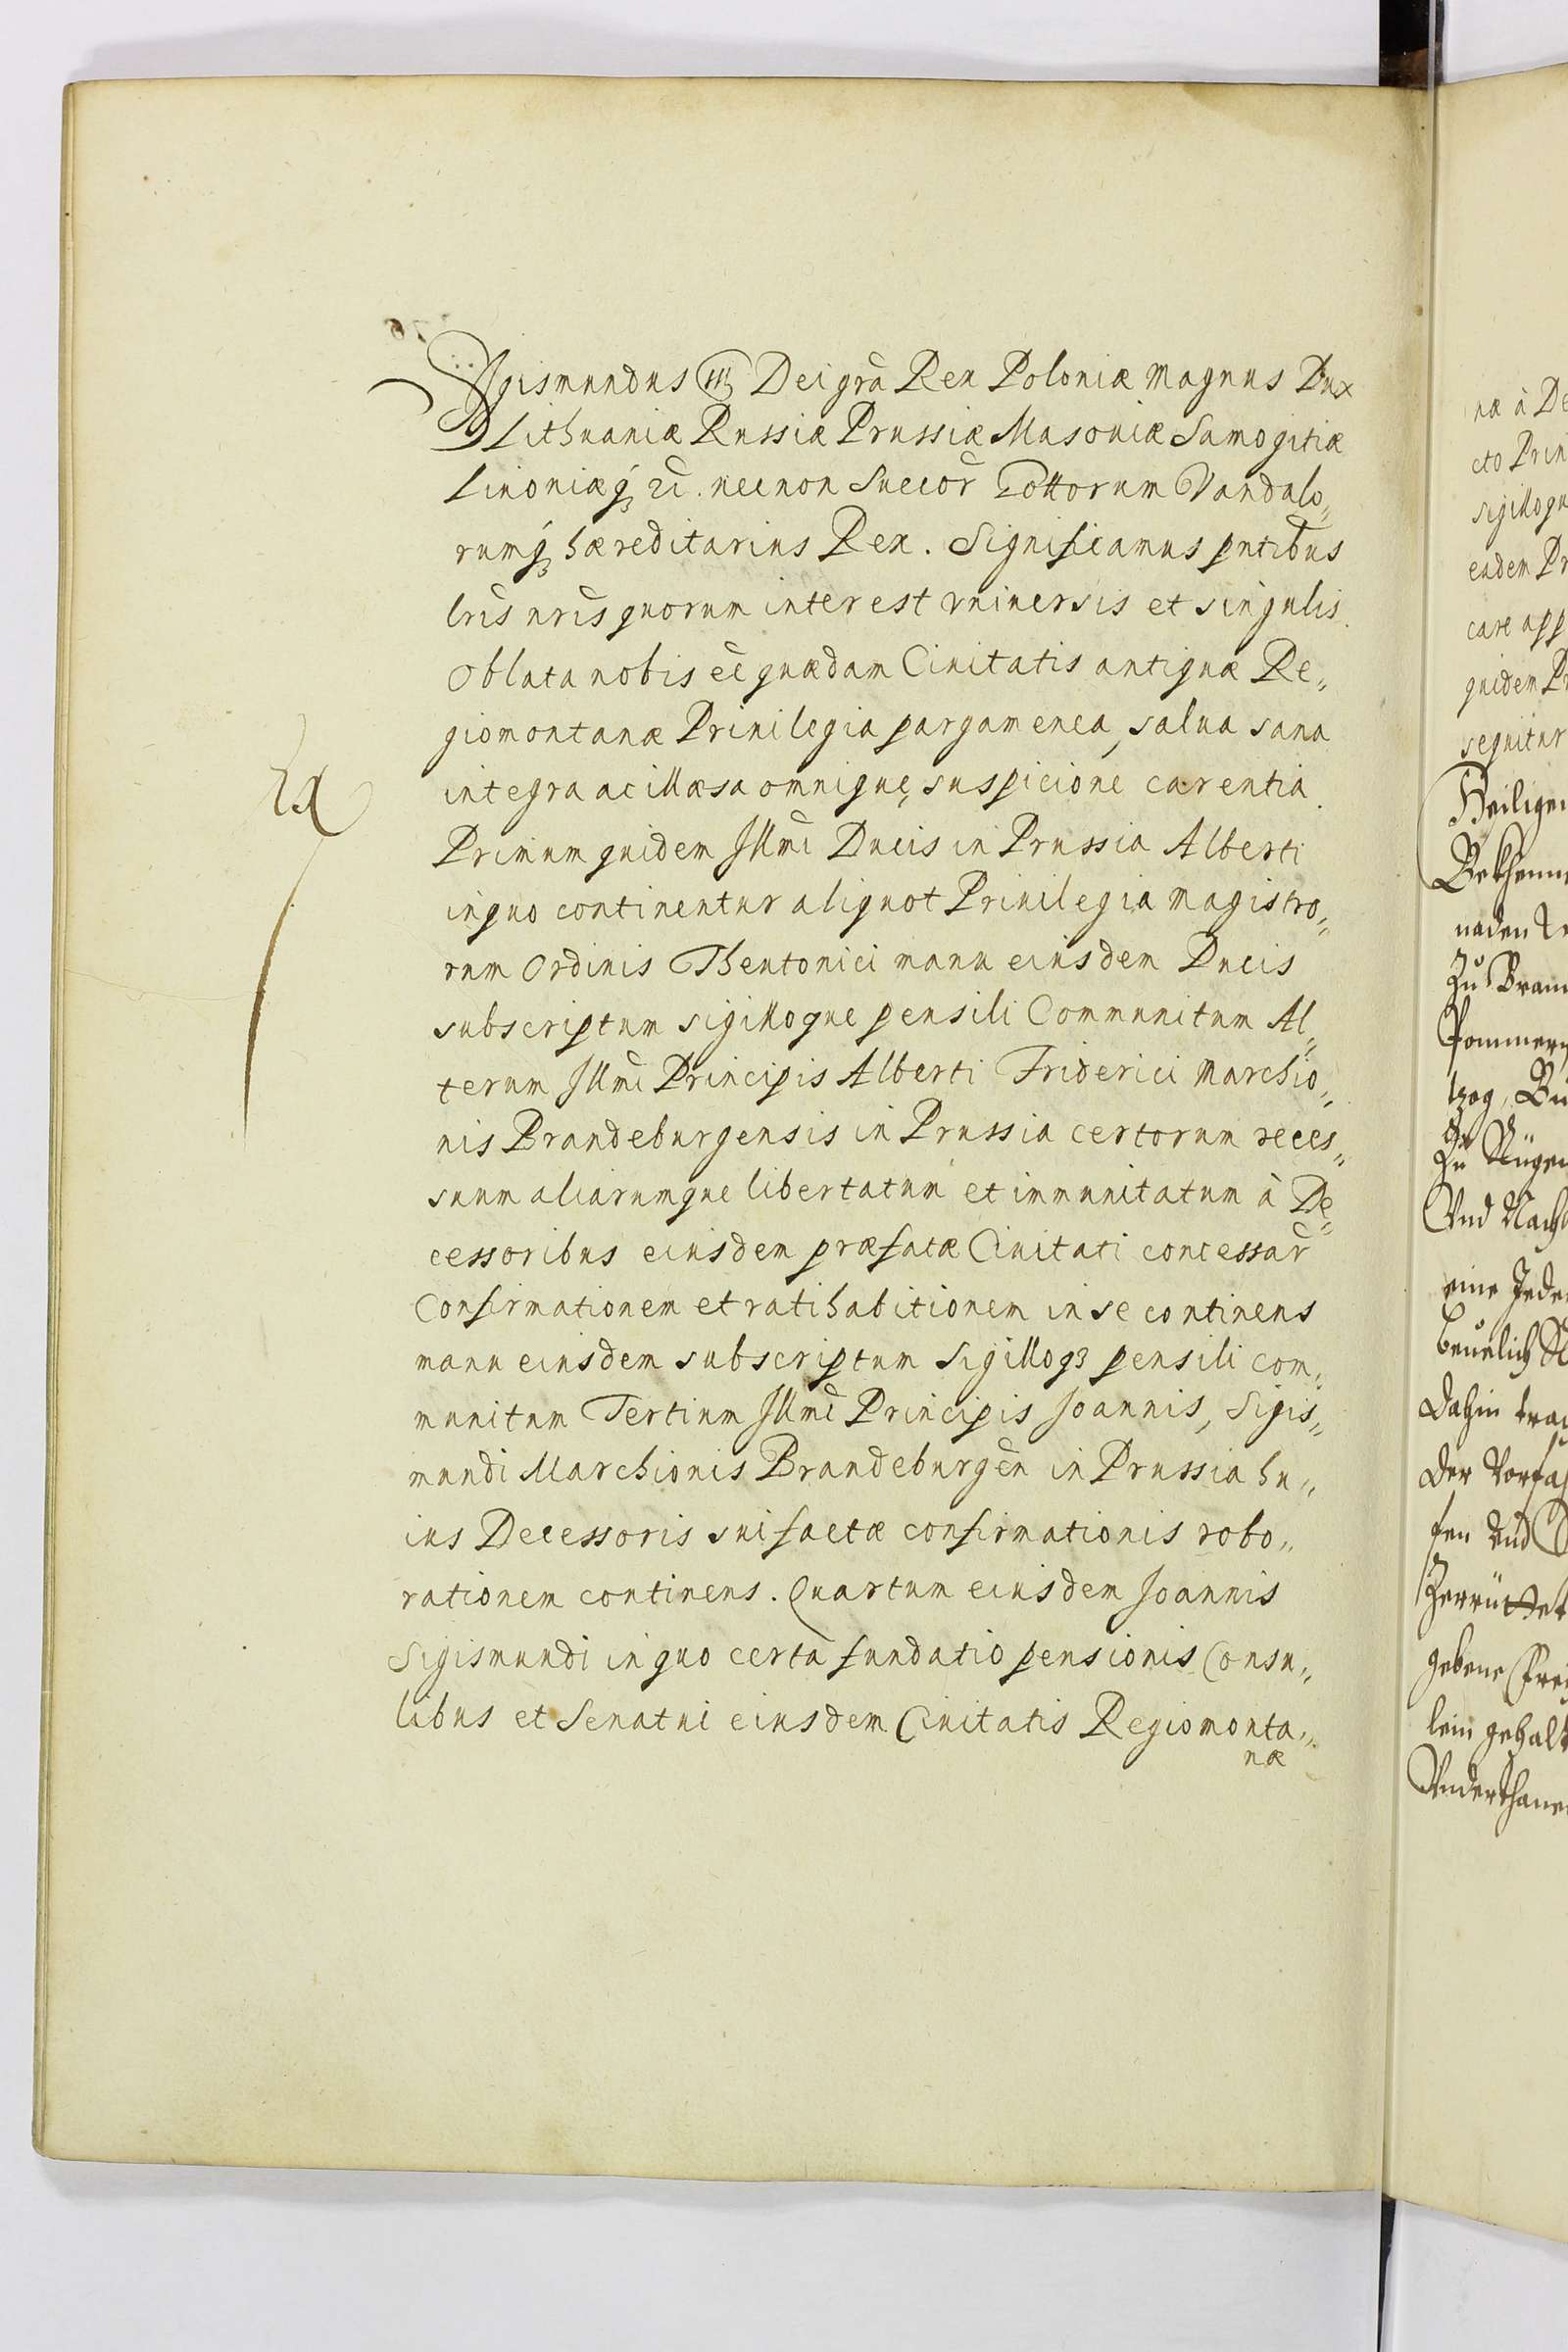 Sigismundus III Dei grã Rex Poloniæ Magnus Dux
Lithuaniæ Russiæ Prussiæ Masoviæ Samogitiæ
Livoniæq́ꝫ ꝛc̃. necnon Suecor̃ Gottorum Vandalo„
rumq́ꝫ hæreditarius Rex. Significamus pñtibus
lr̃is nr̃is quorum interest vniuersis et singulis.
Oblata nobis eẽ quædam Ciuitatis antiquæ Re„
giomontanæ Priuilegia pargamenea, salua sana
integra ac illæsa omnique, suspicione carentia.
Primum quidem Illmĩ Ducis in Prussia Alberti
in quo continentur aliquot Priuilegia Magistro„
rum Ordinis Theutonici manu eiusdem Ducis
subscriptum sigilloque pensili Communitum Al„
terum Illmĩ Principis Alberti Friderici Marchio„
nis Brandeburgensis in Prussia certorum reces„
suum aliarumque libertatum et immunitatum à De„
cessoribus eiusdem præfatæ Ciuitati concessar̃
Confirmationem et ratihabitionem in se continens
manu eiusdem subscriptum Sigilloqꝫ pensili com„
munitum Tertium Illmĩ Principis Joannis, Sigis„
mundi Marchionis Brandeburgẽn in Prussia hu„
ius Decessoris sui factæ confirmationis robo„
rationem continens. Quartum eiusdem Joannis
Sigismundi in quo certa fundatio pensionis Consu„
libus et Senatui eiusdem Ciuitatis Regiomonta„
næ
næ à De
cto Prin
sigilloqu
eadem Pr
care app
quidem Pr
sequitur
Heiligen
Bekhenne
naden
Zu Bran
Pommern
tzog, Bu
Zu Rügen
Vnd Nach
eine Jede
Dahin
der Vorfa
sen vnd
Zerrüttet
gebene Frei
lein gehalt
Vnderthane